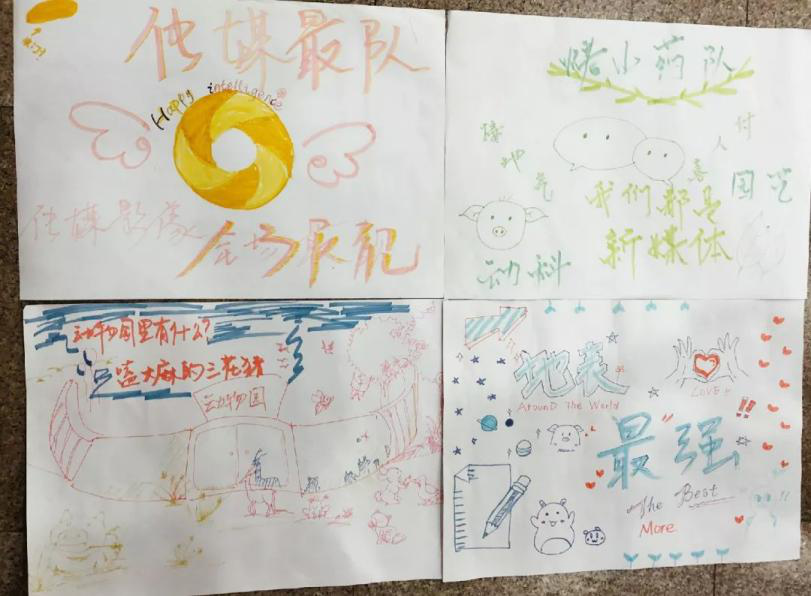 传媒最队
Happy intelligence
传媒影像
全场最靓
小药队
接地气
付
人
喜
园艺
我们都是
新媒体
动科
动物园里有什么?
嗑大麻的三花猪
动物园
地表
Around The World
LOVE
最"强
!!
The Best
More